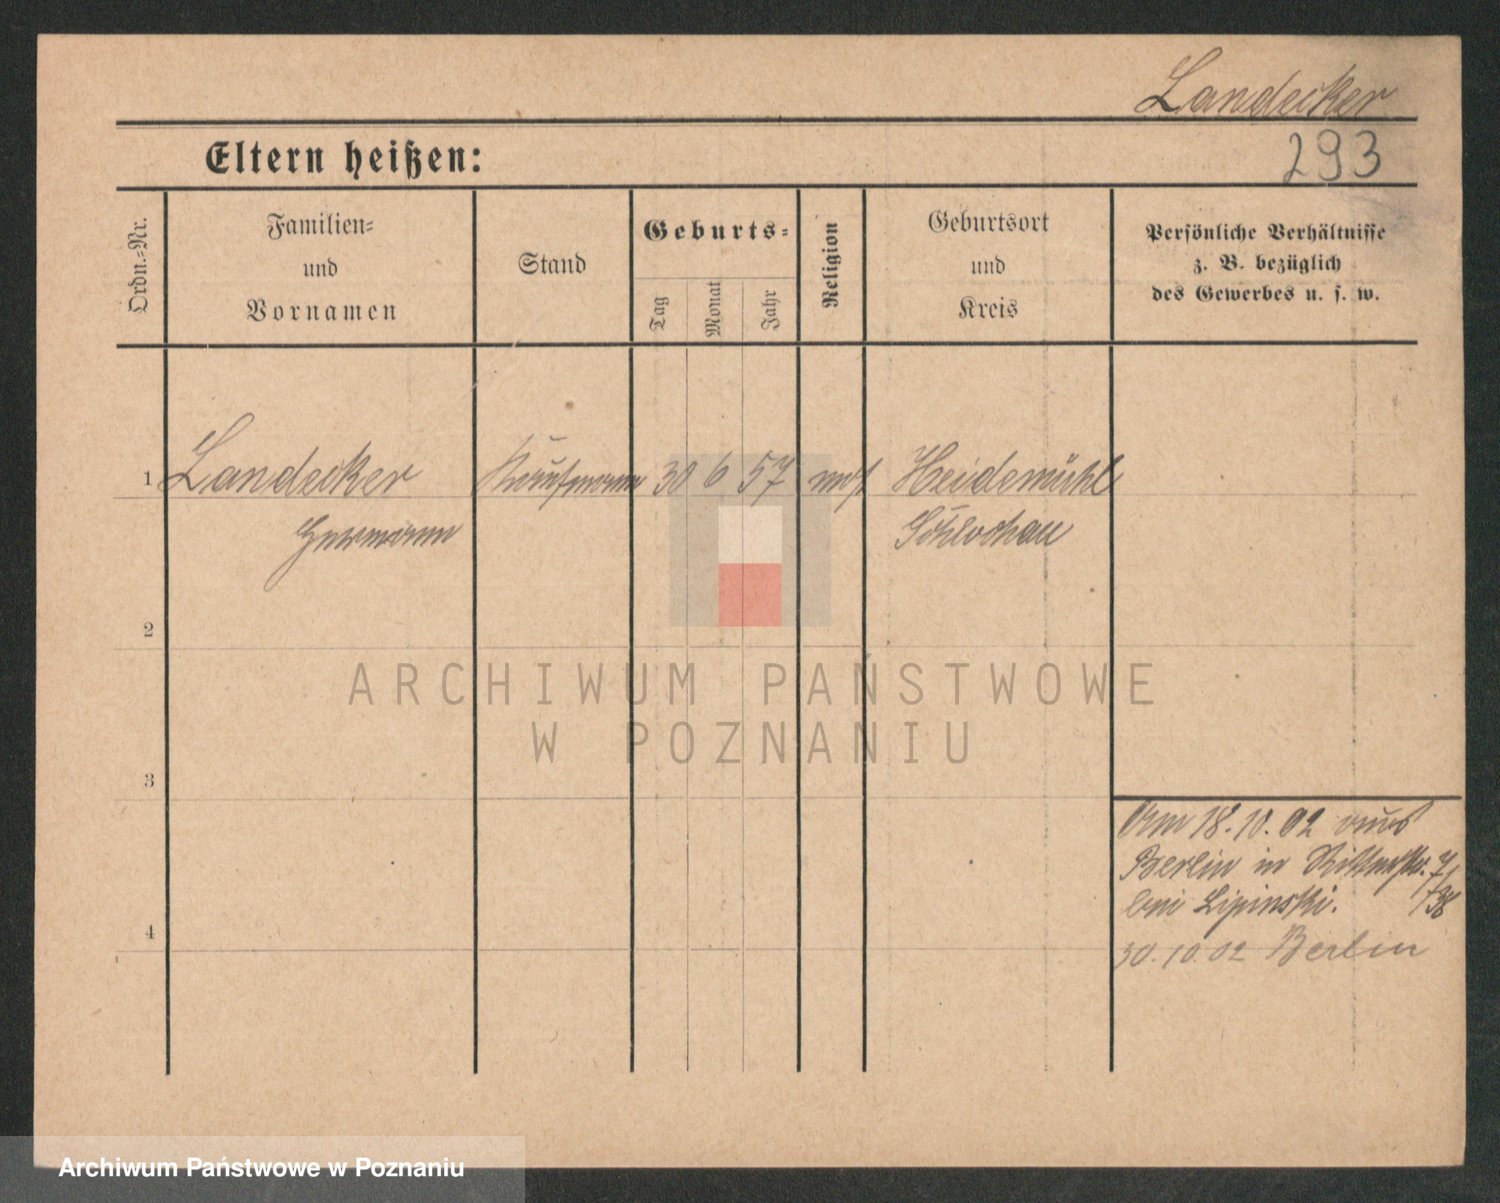 Landecker
Eltern heißen:
293
Ordn.-Nr.
Familien-
und
Vornamen
Stand
Geburts-
Tag
Monat
Jahr
Religion
Geburtsort
und
Kreis
Persönliche Verhältnisse
z. B. bezüglich
des Gewerbes u. s. w.
1 Landecker Kaufmann 30 6 57 mos Heidemühl
Hermann Schlochau
2
ARCHIWUM PAŃSTWOWE
W POZNANIU
3
Am 18.10.02 aus
Berlin in Ritterstr. 7/
38
bei Lipinski.
4
30.10.02 Berlin
Archiwum Państwowe w Poznaniu